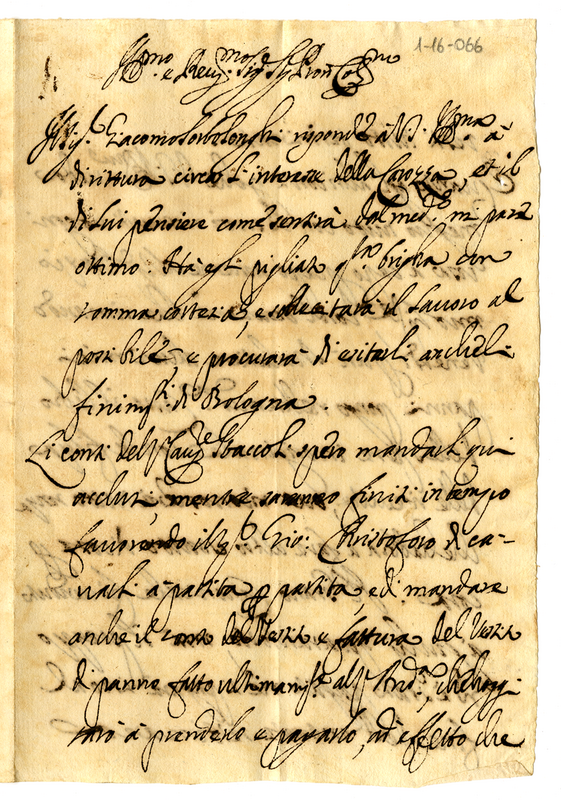 1-16-066
Ill.mo e Rev.mo Sig.re Sig. Pron Col.mo
Il Sig.r Giacomo Sorbolonghi risponde à V.S. Ill.ma à
dirittura circa l'interesse della Carozza, et il
di lui pensiere come sentirà dal med.o mi pare
ottimo. Hà egli pigliato q.sta briglia con
somma cortesia, e sollecitarà il lavoro al
possibile, e procurarà di evitarli anche li
finim.ti di Bologna.
Li conti del Sbaccoli spero mandarli qui
acclusi mentre saranno finiti in tempo
favorendo il Gio: Christoforo di ca-
varli à partita p partita, e di mandare
anche il conto del e fattura del
di panno fatto ultimam.te al And.a, che hoggi
à prenderlo e pagarlo, ad effetto che